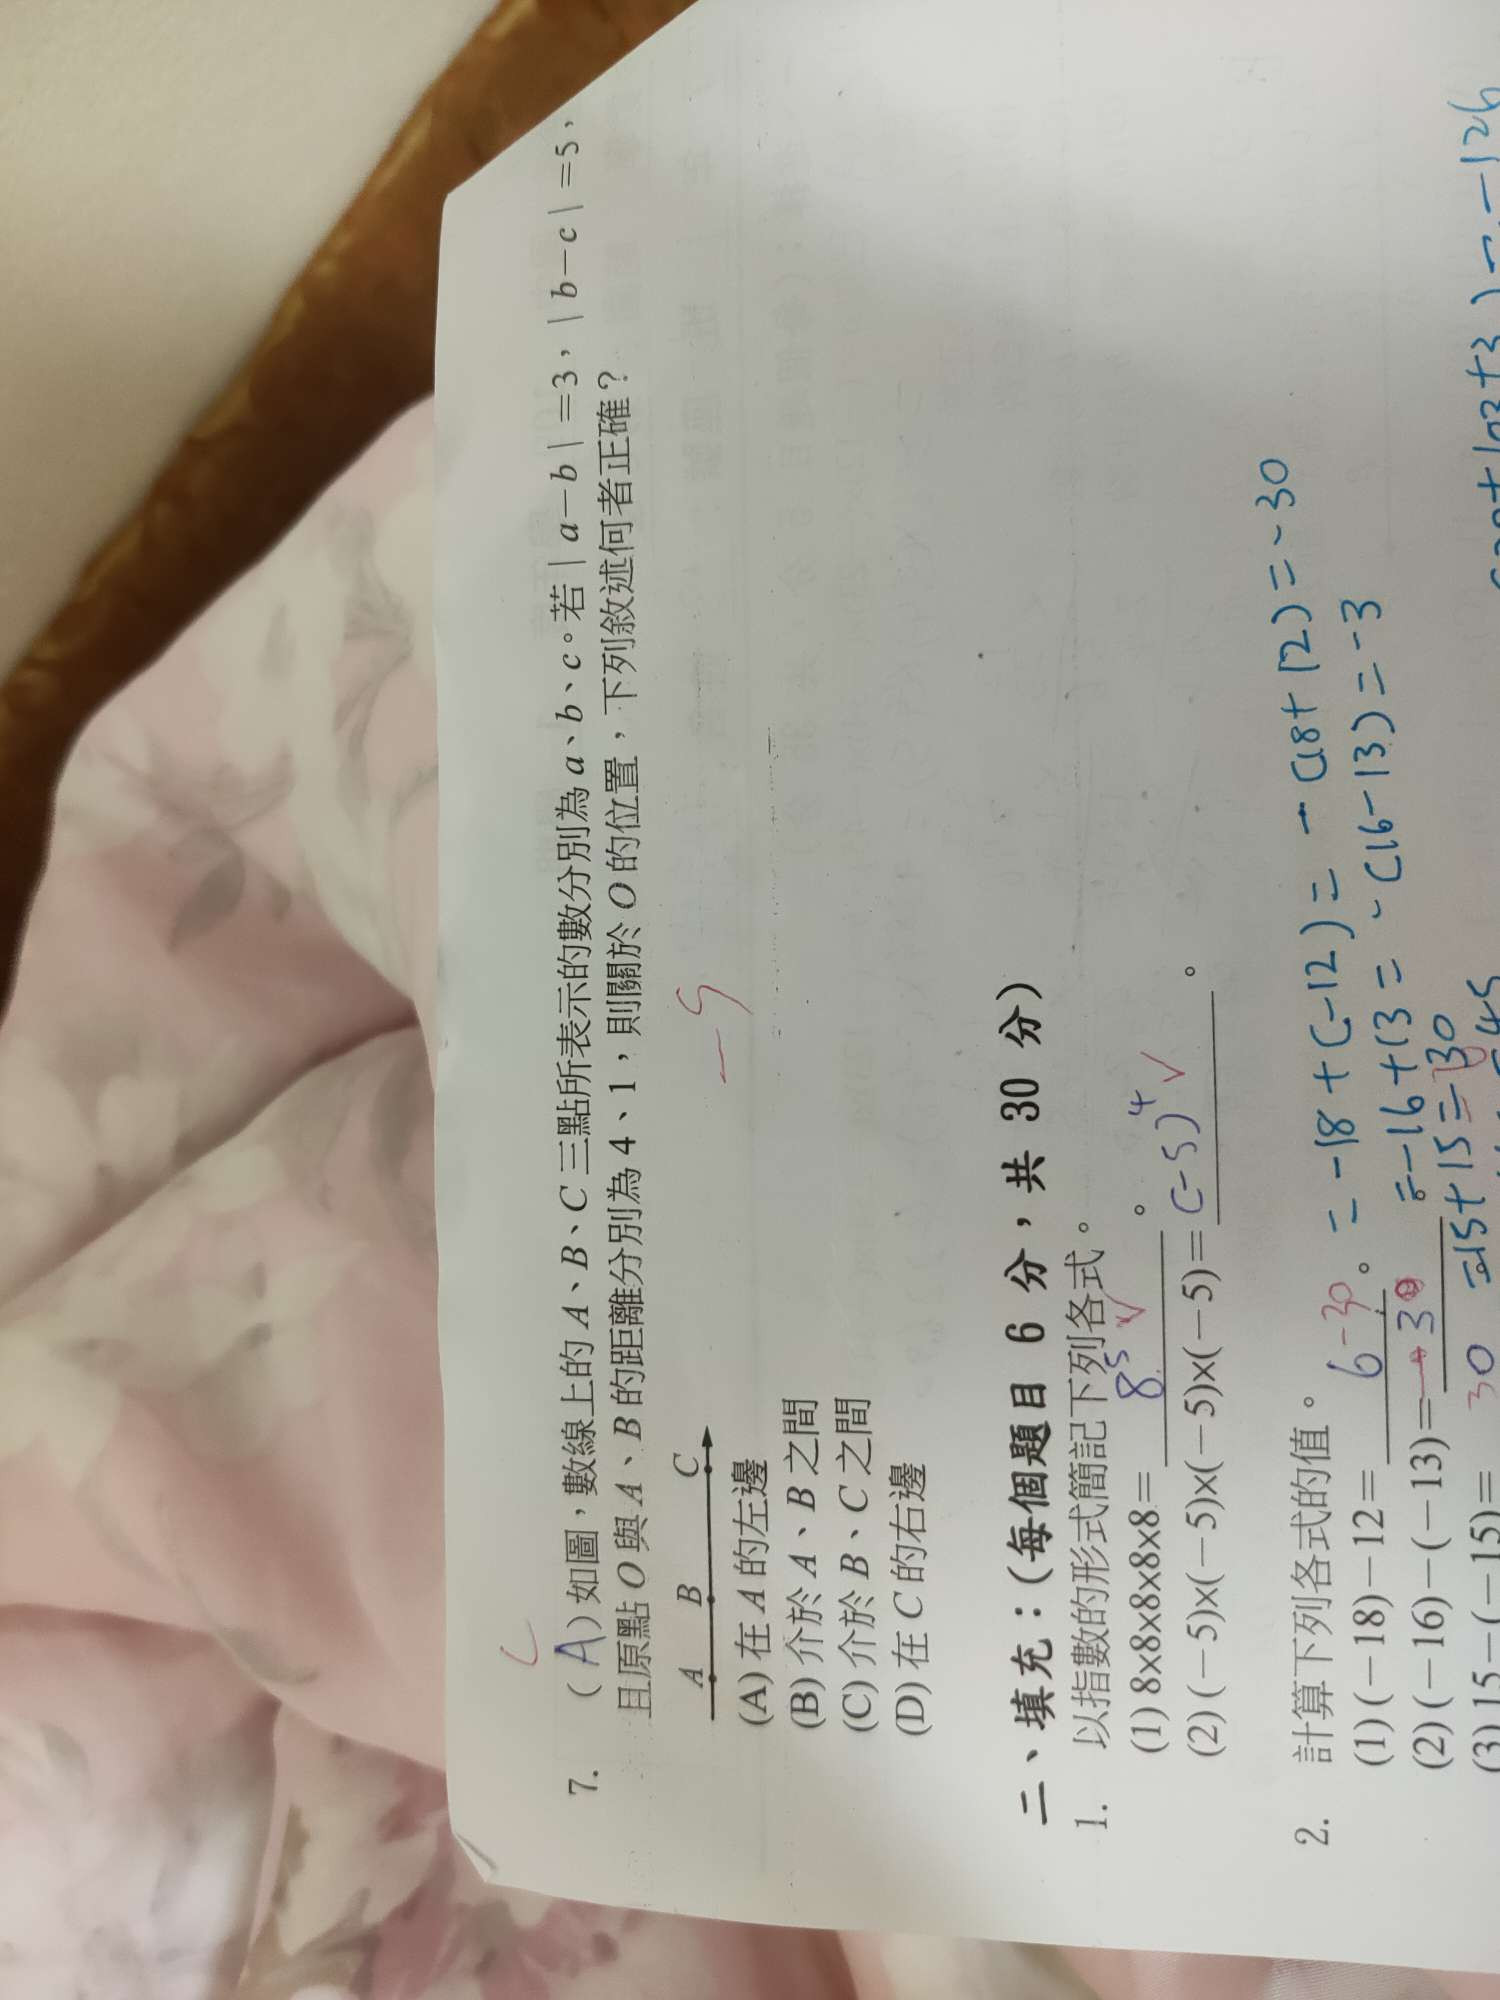 C
7. ( A ) 如圖，數線上的 A、B、C 三點所表示的數分別為 a、b、c。若｜a－b｜=3，｜b－c｜=5，
且原點 O 與 A、B 的距離分別為 4、1，則關於 O 的位置，下列敘述何者正確？
A B C
-5
(A) 在 A 的左邊
(B) 介於 A、B 之間
(C) 介於 B、C 之間
(D) 在 C 的右邊
二、填充：(每個題目 6 分，共 30 分)
1. 以指數的形式簡記下列各式。
(1) 8×8×8×8×8= 8⁵ ✓ 。
(2) (－5)×(－5)×(－5)×(－5)= (-5)⁴ ✓ 。
2. 計算下列各式的值。
(1) (－18)－12= 6 -30 。 = -18+(-12)= -(18+12)= -30
(2) (－16)－(－13)= -3 = -16+13= -(16-13)= -3
(3) 15－(－15)= 30 =15+15=30